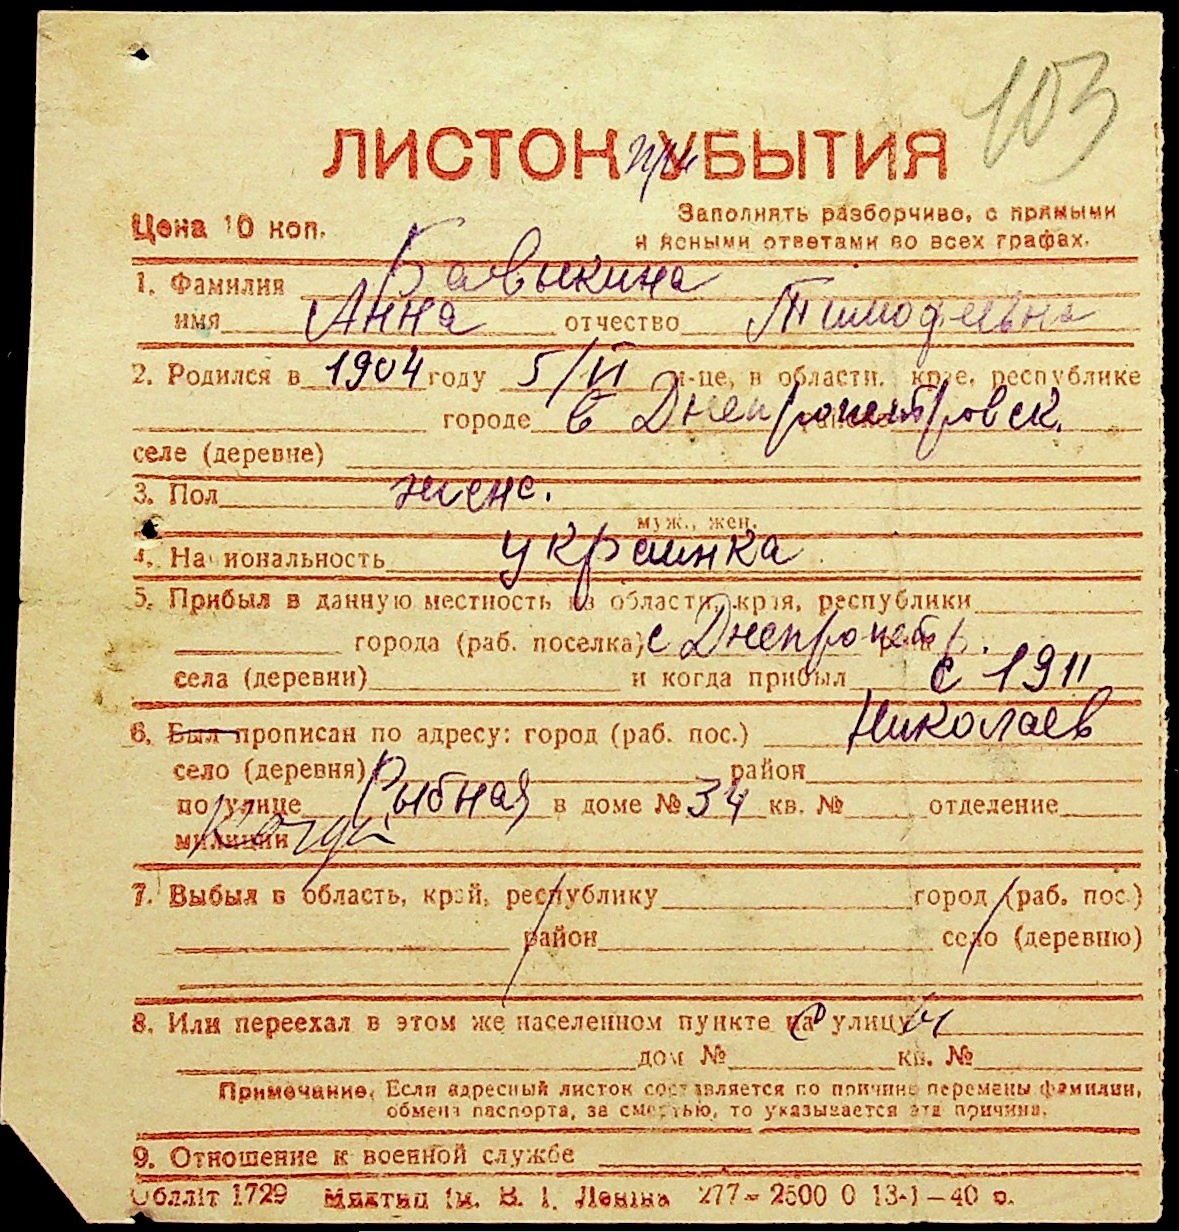 103
ЛИСТОК при УБЫТИЯ
Цена 10 коп.
Заполнять разборчиво, с прямыми
и ясными ответами во всех графах.
1. Фамилия Бавыкина
имя Анна отчество Тимофеевна
2. Родился в 1904 году 5/VI м-це, в области, крае, республике
городе в Днепропетровск.
селе (деревне)
3. Пол женс.
муж., жен.
4. Национальность украинка
5. Прибыл в данную местность из области, края, республики
города (раб. поселка) с Днепропетр.
села (деревни) и когда прибыл с 1911
6. Был прописан по адресу: город (раб. пос.) Николаев
село (деревня) район
по улице Рыбная в доме № 34 кв. № отделение
милиции
7. Выбыл в область, край, республику город (раб. пос.)
район село (деревню)
8. Или переехал в этом же населенном пункте на улицу
дом № кв. №
Примечание. Если адресный листок составляется по причине перемены фамилии,
обмена паспорта, за смертью, то указывается эта причина.
9. Отношение к военной службе
Облліт 1729 Миктип ім. В. І. Леніна 277–2500 0 13-І–40 р.